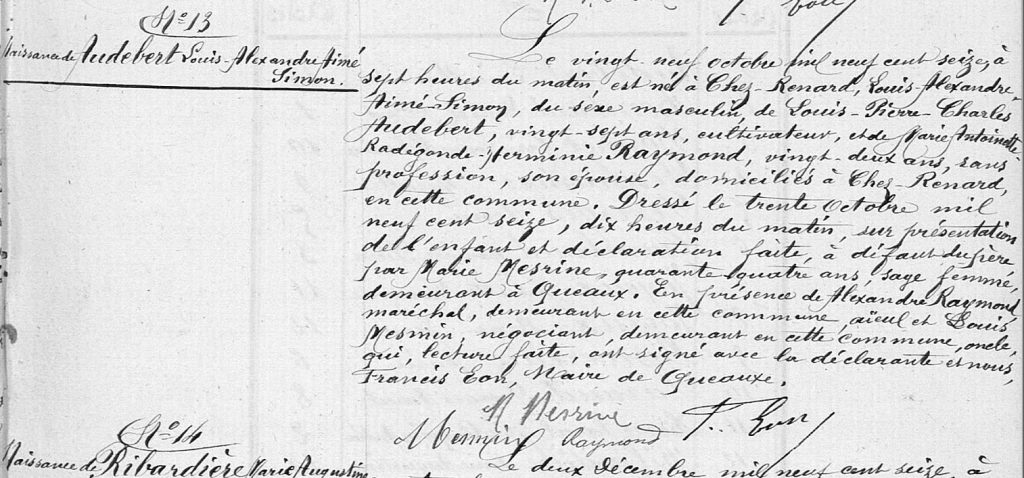 N° 13
Naissance de Audebert Louis-Alexandre Aimé
Simon.
Le vingt neuf octobre mil neuf cent seize, à
sept heures du matin, est né à Chez-Renard, Louis-Alexandre-
Aimé-Simon, du sexe masculin, de Louis-Pierre-Charles
Audebert, vingt-sept ans, cultivateur, et de Marie Antoinette-
Radégonde-Herminie Raymond, vingt-deux ans, sans
profession, son épouse, domiciliés à Chez-Renard,
en cette commune. Dressé le trente Octobre mil
neuf cent seize, dix heures du matin, sur présentation
de l'enfant et déclaration faite, à défaut du père
par Marie Mesrine, quarante quatre ans, sage femme,
demeurant à Queaux. En présence de Alexandre Raymond
maréchal, demeurant en cette commune, aïeul et Louis
Mesmin, négociant, demeurant en cette commune, oncle,
qui, lecture faite, ont signé avec la déclarante et nous,
Francis Eon, Maire de Queaux.
M Mesrine
Mesmin L Raymond F. Eon
N° 14
Naissance de Ribardière Marie Augustine
Le deux Décembre mil neuf cent seize, à